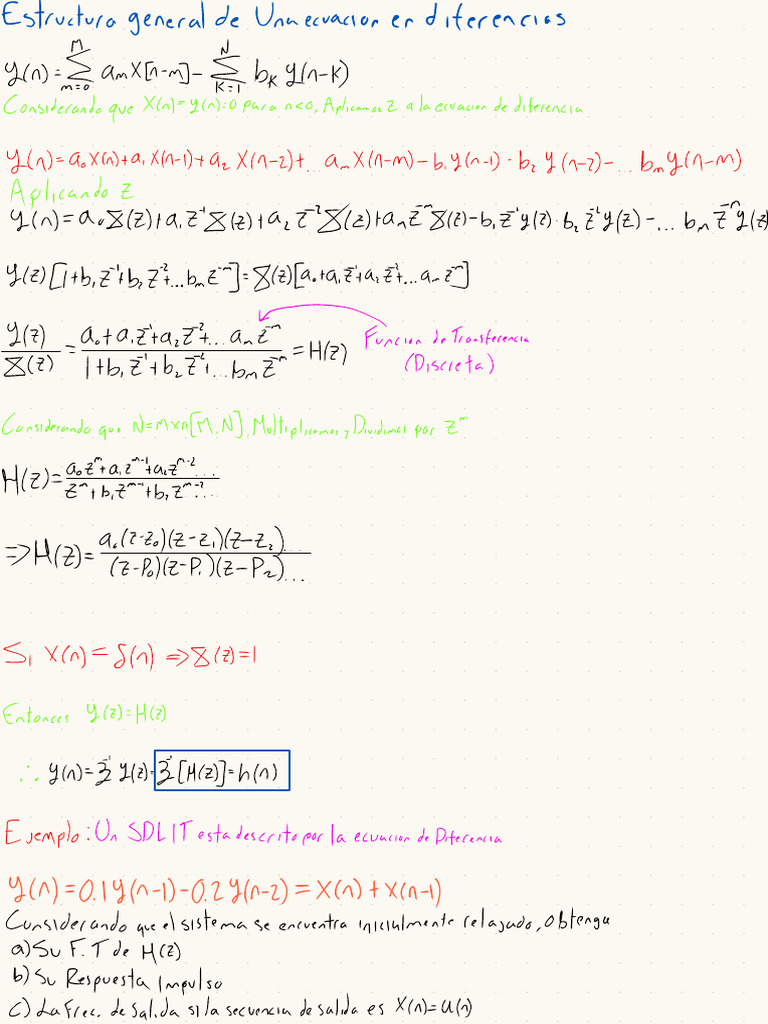 Estructura general de Una ecuacion en diferencias
y(n) = Σ_{m=0}^{M} a_m x[n-m] - Σ_{k=1}^{N} b_k y(n-k)
Considerando que x(n)=y(n)=0 para n<0, Aplicamos z a la ecuacion de diferencia
y(n)=a₀x(n)+a₁x(n-1)+a₂x(n-2)+...a_m x(n-m)-b₁y(n-1)-b₂y(n-2)-...b_m y(n-m)
Aplicando z
y(n)=a₀X(z)+a₁z⁻¹X(z)+a₂z⁻²X(z)+a_n z⁻ᵐX(z)-b₁z⁻¹y(z)·b₂z⁻¹y(z)-...b_m z⁻ⁿy(z)
y(z)[1+b₁z⁻¹+b₂z⁻²+...b_m z⁻ᵐ]=X(z)[a₀+a₁z⁻¹+a₂z⁻²+...a_m z⁻ᵐ]
y(z)/X(z) = (a₀+a₁z⁻¹+a₂z⁻²+...a_m z⁻ᵐ)/(1+b₁z⁻¹+b₂z⁻²+...b_m z⁻ᵐ) = H(z)
Funcion de Transferencia
(Discreta)
Considerando que N=mxn[M,N], Multiplicamos y Dividimos por zᵐ
H(z)=(a₀zᵐ+a₁zᵐ⁻¹+a₂zᵐ⁻²...)/(zᵐ+b₁zᵐ⁻¹+b₂zᵐ⁻²...)
=>H(z)=(a₀(z-z₀)(z-z₁)(z-z₂)...)/((z-P₀)(z-P₁)(z-P₂)...)
Si x(n)=δ(n) => X(z)=1
Entonces y(z)=H(z)
∴ y(n)=Z⁻¹ y(z)=Z⁻¹[H(z)]=h(n)
Ejemplo: Un SDLIT esta descrito por la ecuacion de Diferencia
y(n)=0.1y(n-1)-0.2y(n-2)=x(n)+x(n-1)
Considerando que el sistema se encuentra inicialmente relajado, obtenga
a) Su F.T de H(z)
b) Su Respuesta Impulso
c) La Frec. de Salida si la secuencia de salida es x(n)=u(n)